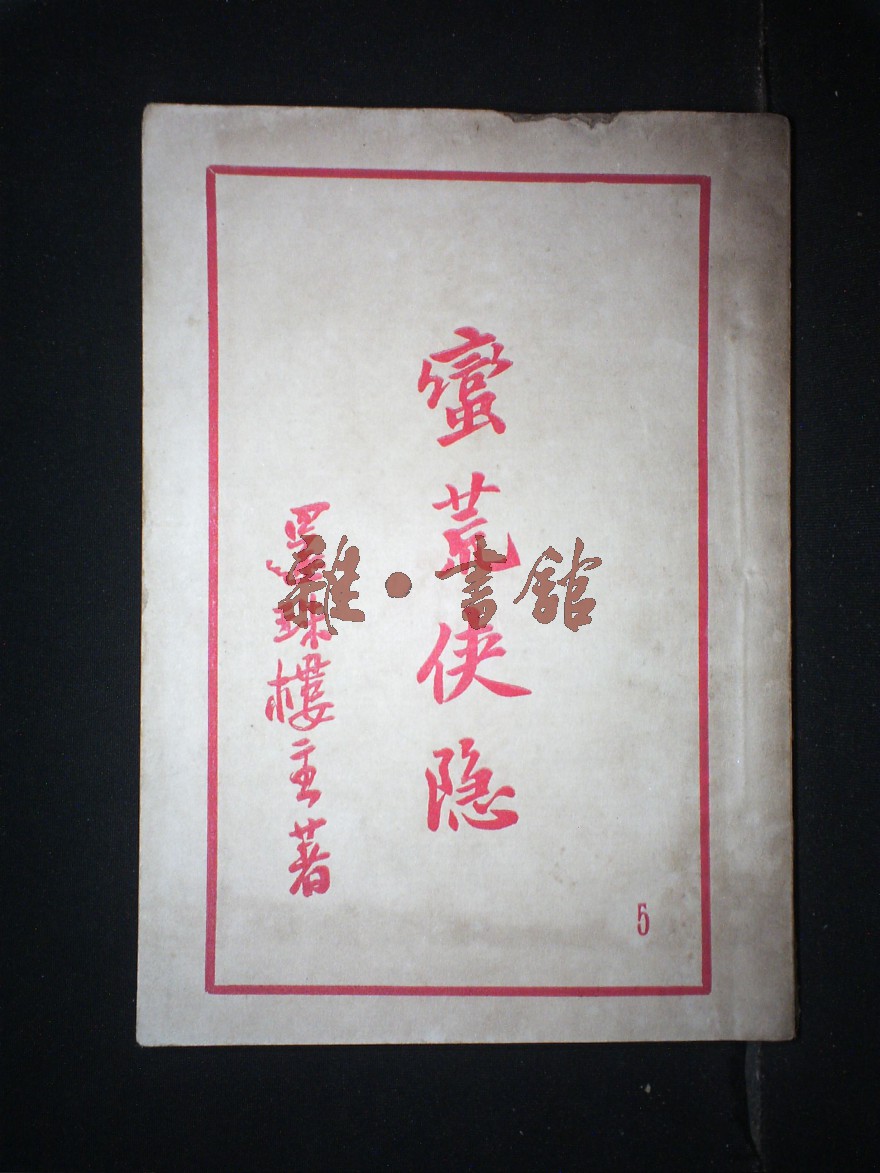 蠻荒俠隐
還珠樓主著
5
雜·書館